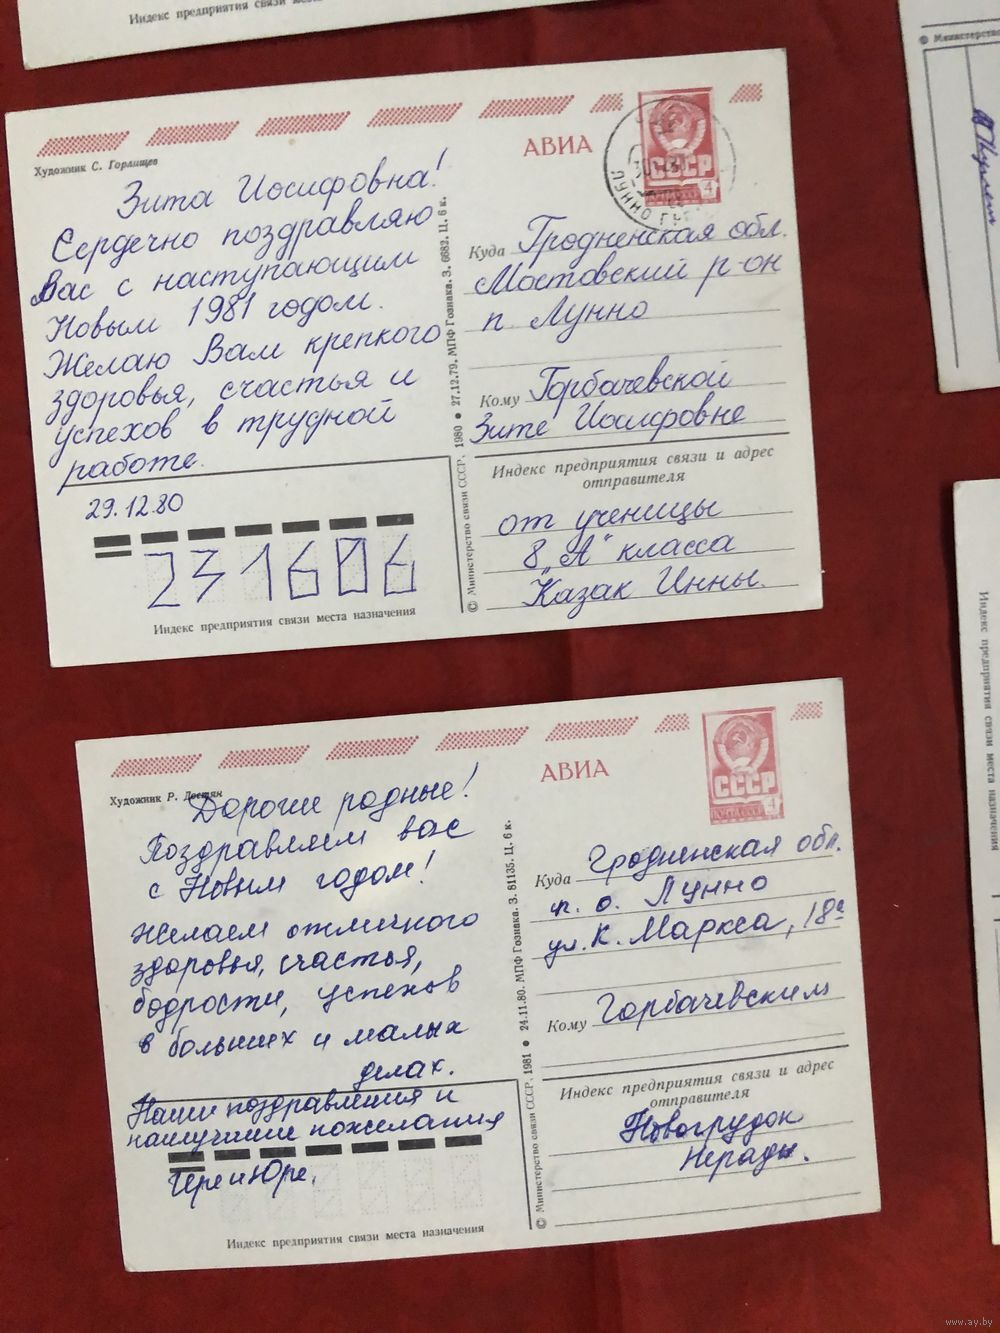 Индекс предприятия связи
© Министерство
Художник С. Горлищев
АВИА
СССР
4
ЛУННО
Зита Иосифовна!
Сердечно поздравляю
Вас с наступающим
Новым 1981 годом.
Желаю Вам крепкого
здоровья, счастья и
успехов в трудной
работе.
29.12.80
231606
Индекс предприятия связи места назначения
© Министерство связи СССР, 1980 • 27.12.79. МПФ Гознака. З. 6682. Ц. 6 к.
Куда Гродненская обл.
Мостовский р-он
п. Лунно
Кому Горбачевской
Зите Иосифовне
Индекс предприятия связи и адрес
отправителя
от ученицы
8 „А" класса
Казак Инны.
Художник Р. Достян
АВИА
СССР
ПОЧТА СССР
4
Дорогие родные!
Поздравляем вас
с Новым годом!
Желаем отличного
здоровья, счастья,
бодрости, успехов
в больших и малых
делах.
Наши поздравления и
наилучшие пожелания
Гере и Юре.
Индекс предприятия связи места назначения
© Министерство связи СССР, 1981 • 24.11.80. МПФ Гознака. З. 81135. Ц. 6 к.
Куда Гродненская обл.
п. о. Лунно
ул. К. Маркса, 18а
Кому Горбачевским
Индекс предприятия связи и адрес
отправителя
Новогрудок
Индекс предприятия связи места назначения
www.ay.by